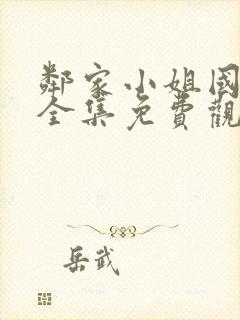 鄰家小姐國
全集免費觀
岳武